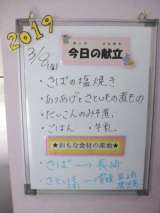 2019
3/8(金)
今日の献立
・さばの塩焼き
・あつあげとさといもの煮もの
・だいこんのみそ煮
・ごはん ・牛乳
★おもな食材の産地★
・さば → 長崎
・さといも → 宮崎